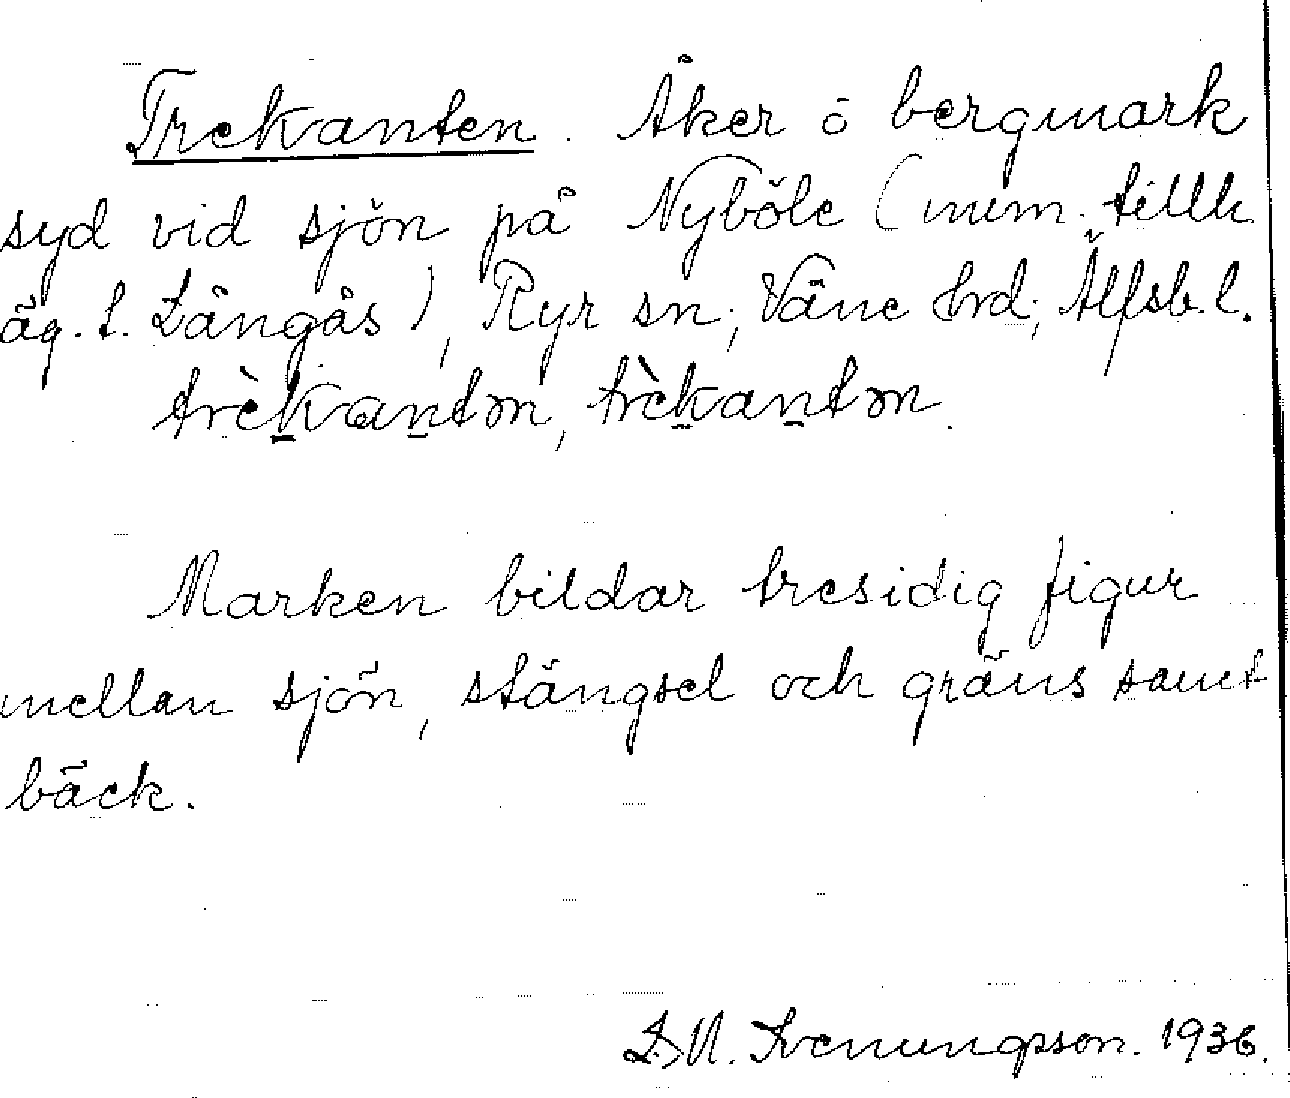 Trekanten. Åker o bergmark
syd vid sjön på Nyböle (num. tillh
äg. t. Långås), Ryr sn; Väne hrd; Älfsb. l.
trèkantən, trèkantən.
Marken bildar tresidig figur
mellan sjön, stängsel och gräns samt
bäck.
Svenungsson. 1936.